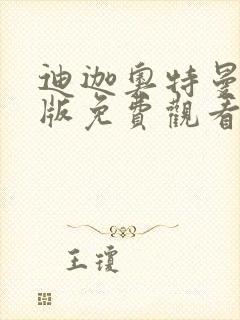 迪迦奥特曼
版免費觀看
王瓊